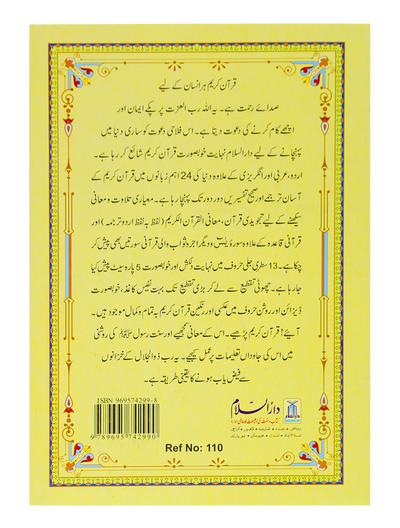 قرآن کریم ہر انسان کے لیے
صدائے رحمت ہے۔ یہ اللہ رب العزت پر پکے ایمان اور
اچھے کام کرنے کی دعوت دیتا ہے۔ اس فلاحی دعوت کو ساری دنیا میں
پہنچانے کے لیے دارالسلام نہایت خوبصورت قرآن کریم شائع کر رہا ہے۔
اردو، عربی اور انگریزی کے علاوہ دنیا کی 24 اہم زبانوں میں قرآن کریم کے
آسان ترجمے اور صحیح تفسیریں دور دور تک پہنچا رہا ہے۔ معیاری تلاوت و معانی
سیکھنے کے لیے تجویدی قرآن، معانی القرآن الکریم (لفظ بہ لفظ اردو ترجمہ) اور
قرآنی قاعدہ کے علاوہ سورۂ یٰسٓ و دیگر اجر و ثواب والی قرآنی سورتیں بھی پیش کر
چکا ہے۔ 13 سطری جلی حروف میں نہایت دلکش اور خوبصورت 5 پارہ سیٹ پیش کیا
جا رہا ہے۔ چھوٹی تقطیع سے لے کر بڑی تقطیع تک بہت نفیس کاغذ، خوبصورت
ڈیزائن اور روشن حروف میں عکسی اور رنگین قرآن کریم بہ تمام و کمال موجود ہیں۔
آیئے! قرآن کریم پڑھیے۔ اس کے معانی سمجھیے اور سنت رسول ﷺ کی روشنی
میں اس کی جاوداں تعلیمات پر عمل کیجیے۔ یہ رب ذوالجلال کے خزانوں
سے فیض یاب ہونے کا یقینی طریقہ ہے۔
ISBN 969574299-8
9 789695 742990
دارالسلام
Ref No: 110